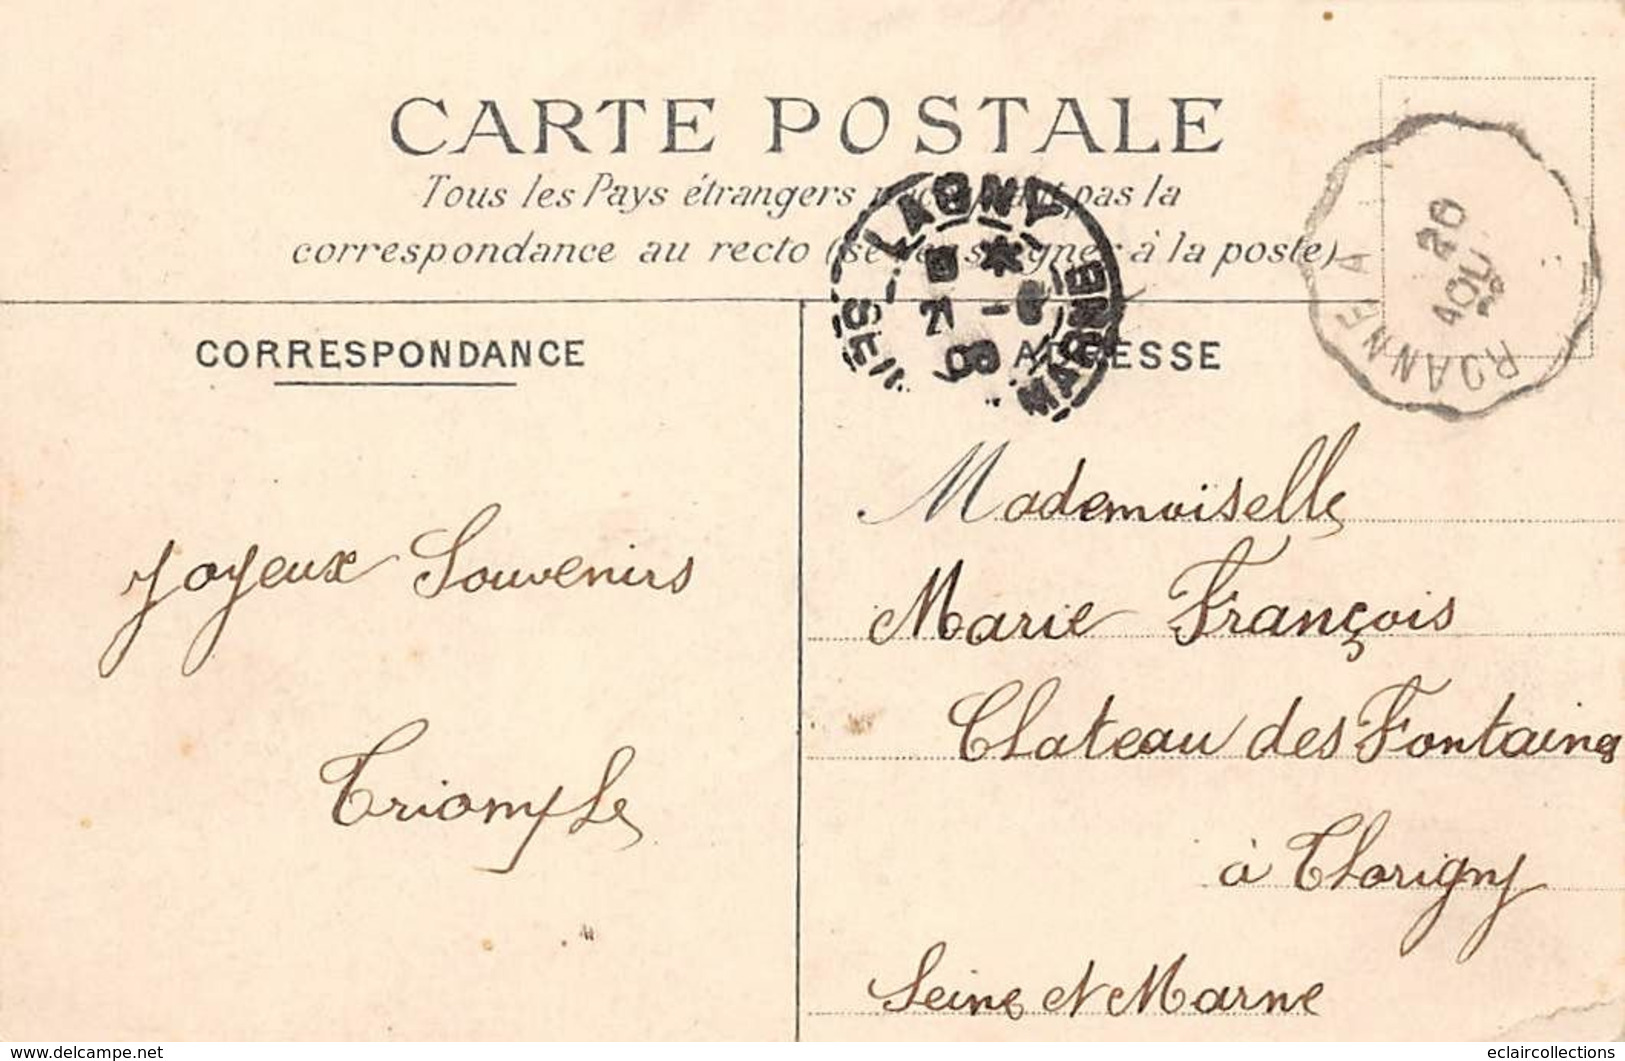 CARTE POSTALE
Tous les Pays étrangers pas la
correspondance au recto à la poste)
LAGNY
SEINE MARNE
ROANNE A
26
AOU
CORRESPONDANCE
ADRESSE
Joyeux Souvenirs
Triomphe
Mademoiselle
Marie François
Chateau des Fontaines
à Thorigny
Seine et Marne
www.delcampe.net
eclaircollections